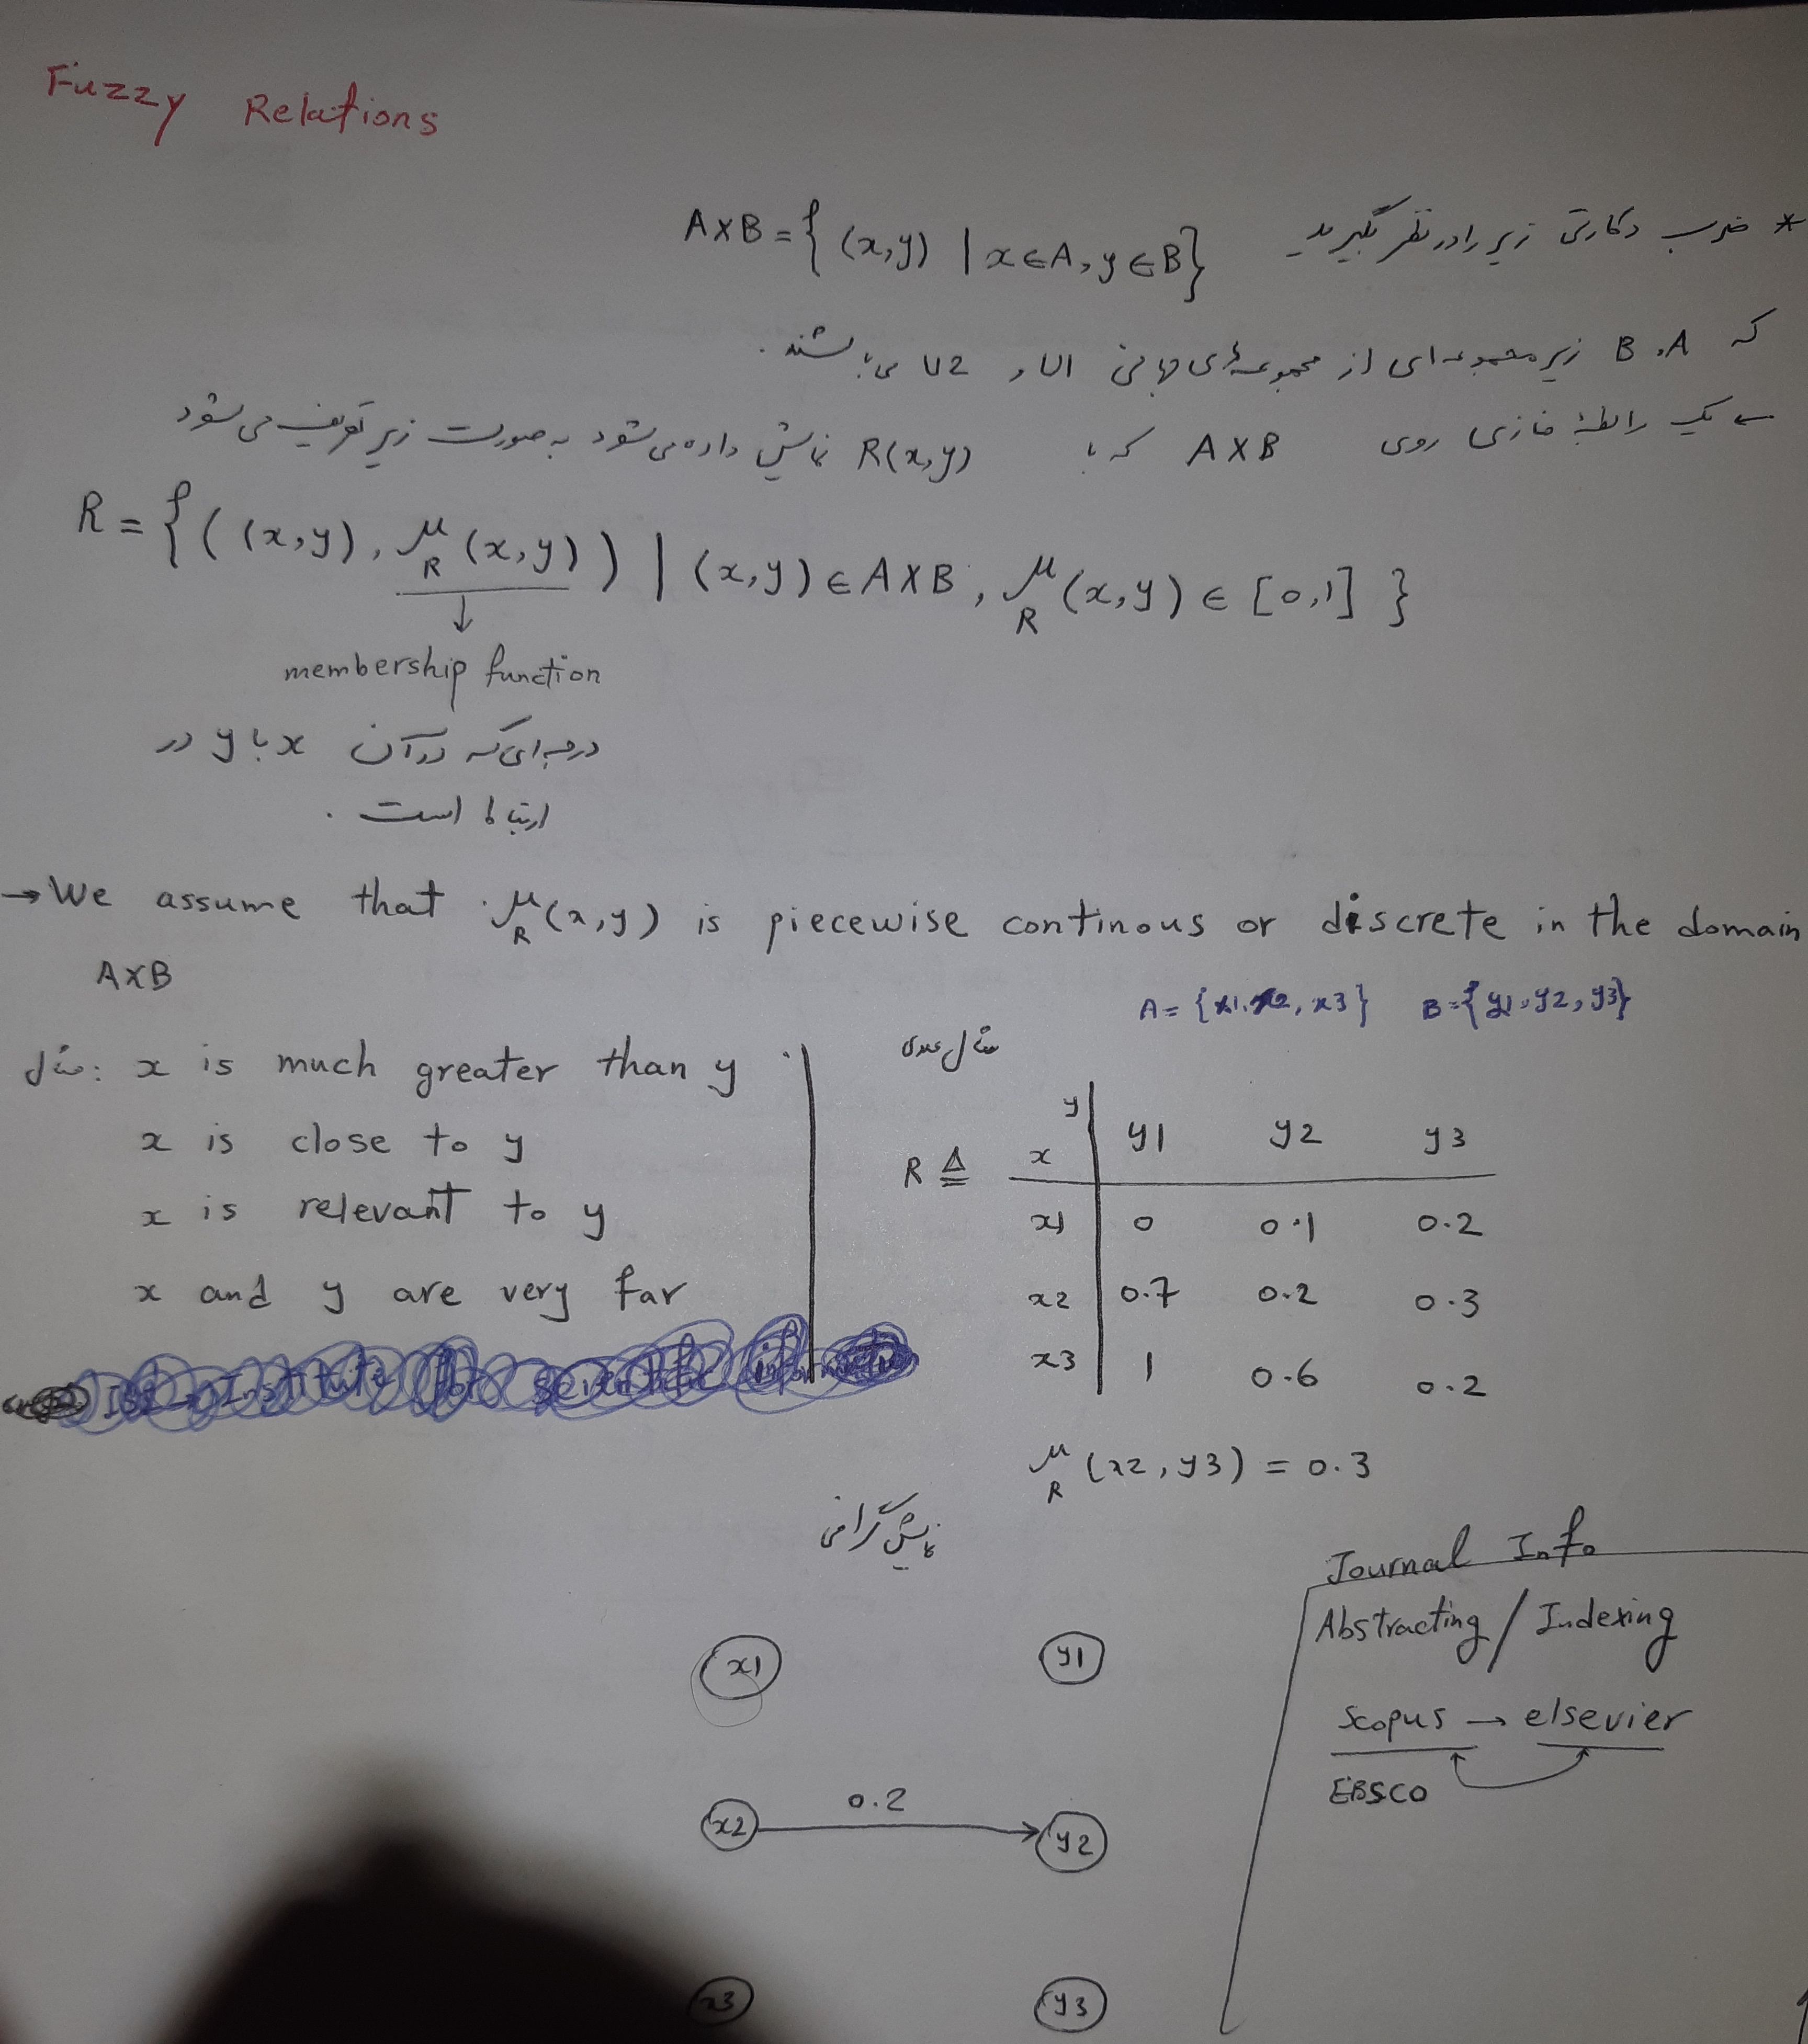 Fuzzy Relations
* ضرب دکارتی زیر را در نظر بگیرید A×B = { (x,y) | x∈A, y∈B }
که A، B زیر مجموعه‌ای از مجموعه‌های جهانی U1 و U2 می‌باشند.
← یک رابطهٔ فازی روی A×B که با R(x,y) نمایش داده می‌شود به صورت زیر تعریف می‌شود
R = { ((x,y), μ_R(x,y)) | (x,y) ∈ A×B, μ_R(x,y) ∈ [0,1] }
↓
membership function
درجه‌ای که در آن x با y در
ارتباط است.
→ We assume that μ_R(x,y) is piecewise continous or discrete in the domain
A×B
A = {x1, x2, x3} B = {y1, y2, y3}
مثال: x is much greater than y
x is close to y
x is relevant to y
x and y are very far
مثال عددی
R ≜
y
x y1 y2 y3
x1 0 0.1 0.2
x2 0.7 0.2 0.3
x3 1 0.6 0.2
μ_R(x2, y3) = 0.3
نمایش گرافی
x1 y1
x2 0.2 → y2
x3 y3
Journal Info
Abstracting / Indexing
Scopus → elsevier
EBSCO